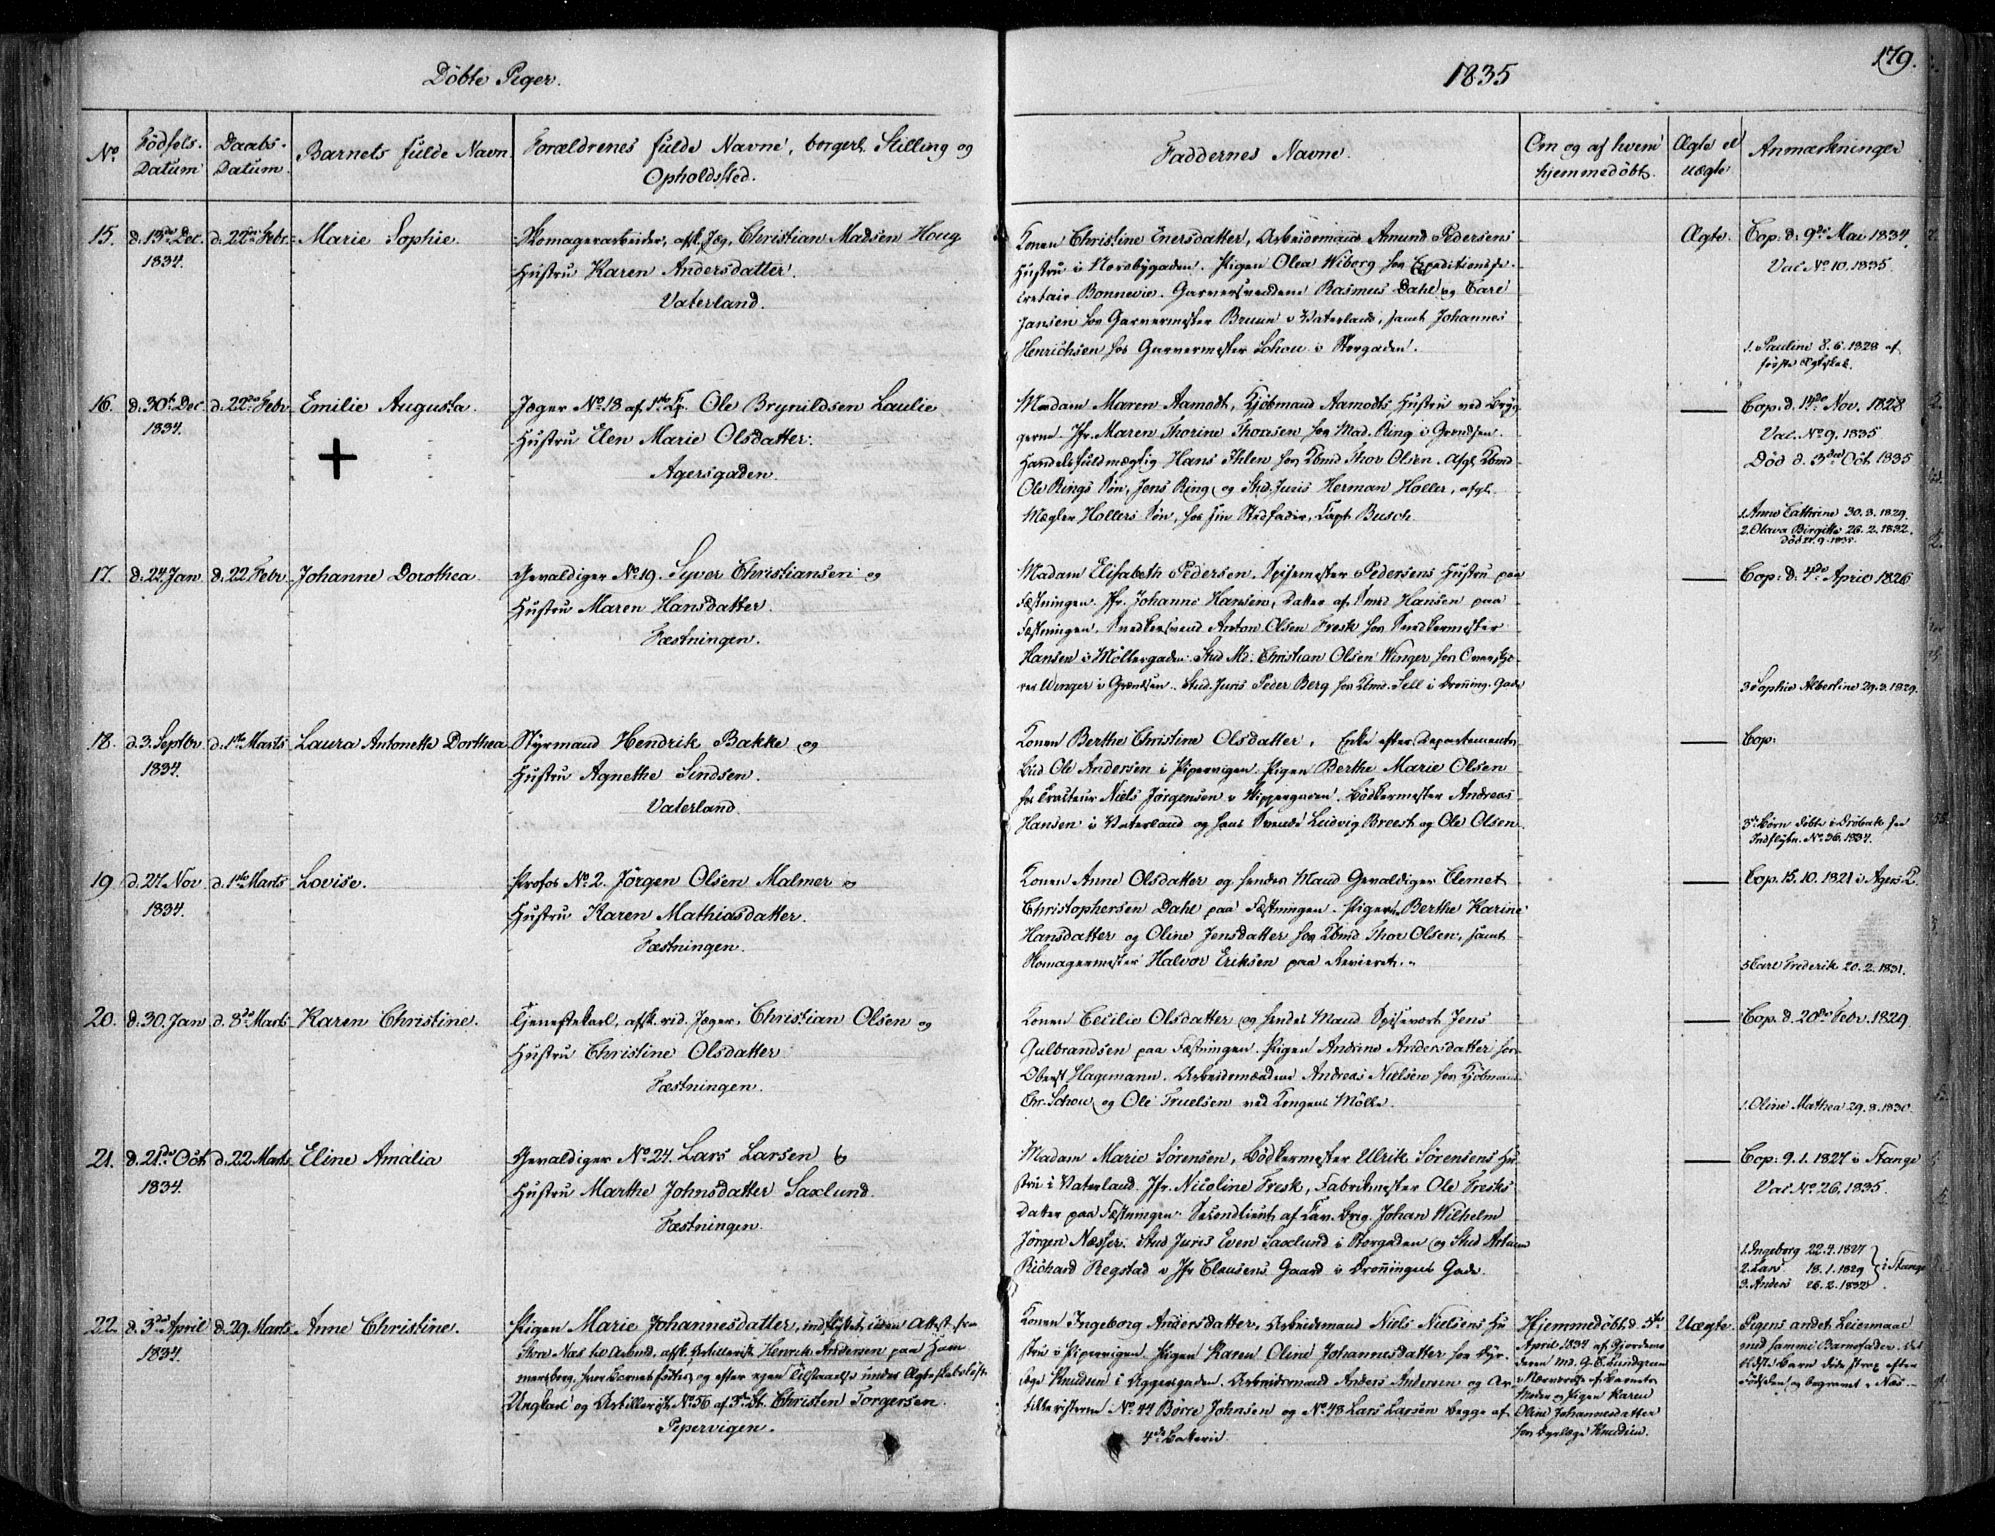 Döbte Piger.
1835
179.
No.
Födsels-
Datum
Daabs-
Datum.
Barnets fulde Navn
Forældrenes fulde Navne, borgerl. Stilling og
Opholdssted.
Faddernes Navne.
Om og af hvem
hjemmedöbt.
Ægte el
uægte.
Anmærkninger
15.
d. 13de Dec
1834.
d. 22de Febr.
Marie Sophie.
Skomagerarbeider, afsk. Jæg. Christian Madsen Houg
Hustru Karen Andersdatter.
Vaterland.
Konen Christine Enersdatter, Arbeidsmand Amund Pedersens
Hustru i Norebygaden. Pigen Olea Wiborg hos Expeditionsse-
cretair Bonnevie. Garversvendene Rasmus Dahl og Carl
Jansen hos Garvermester Bruun i Vaterland, samt Johannes
Henrichsen hos Garvermester Schou i Storgaden.
Ægte.
Cop. d. 9de Mai 1834.
Vac No. 10. 1835.
1. Pauline 8.6.1828 af
første Ægteskab.
16.
d. 30te Dec
1834.
d. 22de Febr
Emilie Augusta.
Jæger No. 18 af 1ste Cp. Ole Brynildsen Laulie
Hustru Elen Marie Olsdatter.
Agersgaden.
Madam Maren Aamodt, Kjöbmand Aamodts Hustru ved Bryg-
gerne. Jfr. Maren Thorine Thoresen hos Mad. Ring i Grendsen.
Handelsfuldmægtig Hans Ihlen hos Kbmd Thor Olsen. Afgl. Kbmd
Ole Rings Sön, Jens Ring, og Stud. Juris Herman Holler, afgl.
Mægler Hollers Sön, hos sin Stedfader, Capt. Busch.
Cop. d. 14de Nov. 1828
Vac. No. 9. 1835
Död d. 3die Oct. 1835
1. Anne Cathrine 30.3.1829.
2. Olava Birgitte 26.2.1832.
17.
d. 24 Jan
d. 22 Febr.
Johanne Dorothea.
Gevaldiger No. 19. Syver Christiansen og
Hustru Maren Hansdatter.
Fæstningen.
Madam Elisabeth Pedersen, Spisemester Pedersens Hustru paa
Fæstningen. Jfr. Johanne Hansen, Datter af Smed Hansen paa
Fæstningen. Snedkersvend Anton Olsen Fresk hos Snedkermester
Hansen i Möllergaden. Stud. Md. Christian Olsen Winger, hos
Winger i Grændsen. Stud. Juris Peder Berg hos Kbmd. Sell i Dronning. Gade
Cop: d. 4de April 1826
3 Sophie Albertine 29.3.1829.
18.
d. 3. Septbr
1834.
d. 1ste Marts
Laura Antonette Dorthea
Styrmand Hendrik Bakke og
Hustru Agnethe Sindsen.
Vaterland.
Konen Berthe Christine Olsdatter, Enke efter Departements
bud Ole Andersen i Pipervigen. Pigen Berthe Marie Olsen
hos Tracteur Niels Jörgensen i Vippegaden. Bödkermester Andreas
Hansen i Vaterland og hans Svende Ludvig Breest og Ole Olsen.
Cop:
3 Börn döbte i Dröbak see
Indflytn. No. 36. 1834.
19
d. 27 Nov
1834.
d. 1ste Marts
Lovise.
Profos No. 2. Jörgen Olsen Malmer og
Hustru Karen Mathiasdatter.
Fæstningen.
Konen Anne Olsdatter og hendes Mand Gevaldiger Clemet
Christophersen Dahl paa Fæstningen. Pigerne Berthe Karine
Hansdatter og Oline Jensdatter hos Kbmd Thor Olsen, samt
Skomagermester Halvor Eriksen paa Revieret.
Cop. 15.10.1821 i Agers K.
5 Carl Frederik 20.2.1831.
20.
d. 30. Jan
d. 8de Marts
Karen Christine.
Tjenestekarl, afsk. rid. Jæger, Christian Olsen og
Hustru Christine Olsdatter
Fæstningen.
Konen Cecilie Olsdatter og hendes Mand Spisevært Jens
Gulbrandsen paa Fæstningen. Pigen Andrine Andersdatter hos
Oberst Hagemann. Arbeidsmændene Andreas Nielsen hos Kjöbmand
Chr. Schou, og Ole Truelsen ved Kongens Mölle.
Cop. d. 20de Febr. 1829.
1. Oline Mathea 29.8.1830.
21.
d. 21de Oct
1834.
d. 22 Marts
Eline Amalia
Gevaldiger No. 24. Lars Larsen &
Hustru Marthe Johnsdatter Saxlund.
Fæstningen.
Madam Marie Sörensen, Bödkermester Ulrik Sörensens Hu-
stru i Vaterland. Jfr. Nicoline Fresk, Fabrikmester Ole Fresks
Datter paa Fæstningen. Secondlieut. af Cav. Brig. Johan Wilhelm
Jörgen Næsser. Stud Juris Even Saxlund i Storgaden og Stud. Artium
Richard Regstad i Jfr Clausens Gaard i Dronningens Gade.
Cop: 9.1.1827 i Stange
Vac No. 26. 1835.
1. Ingeborg 22.4.1827
2. Lars 18.1.1829
3. Anders 26.2.1832
i Stange
22
d. 3die April
1834.
d. 29 Marts
Anne Christine.
Pigen Marie Johannesdatter, indflyttet uden Attest fra
Store Næs til Arbud, afsk. Artillerist Henrik Andersen paa Ham-
mersborg, hvor Barnet födtes, og efter egen Tilstaaelse under Ægteskabslöfte
Ungkarl og Artillerist No. 56 af 3die Bt. Christen Torgersen.
Pepervigen.
Konen Ingeborg Andersdatter, Arbeidsmand Niels Nielsens Hu
stru i Pipervigen. Pigen Karen Oline Johannesdatter hos Dyr-
læge Knudsen i Aggersgaden. Arbeidsmand Anders Andersen og Ar-
tilleristerne No. 44 Börre Johnsen og No. 48 Lars Larsen begge af
4de Batterie
Hjemmedöbt d. 5te
April 1834 af Gjordemo-
deren Md. G. E. Lundgreen
i Nærværelse af Barnets
Moder og Pigen Karen
Oline Johannesdatter
hos Dyrlæge Knudsen.
Uægte.
Pigens andet Leiermaal
med samme Barnefader. Det
ældste Barn döde strax efter
Födselen og begravet i Næs